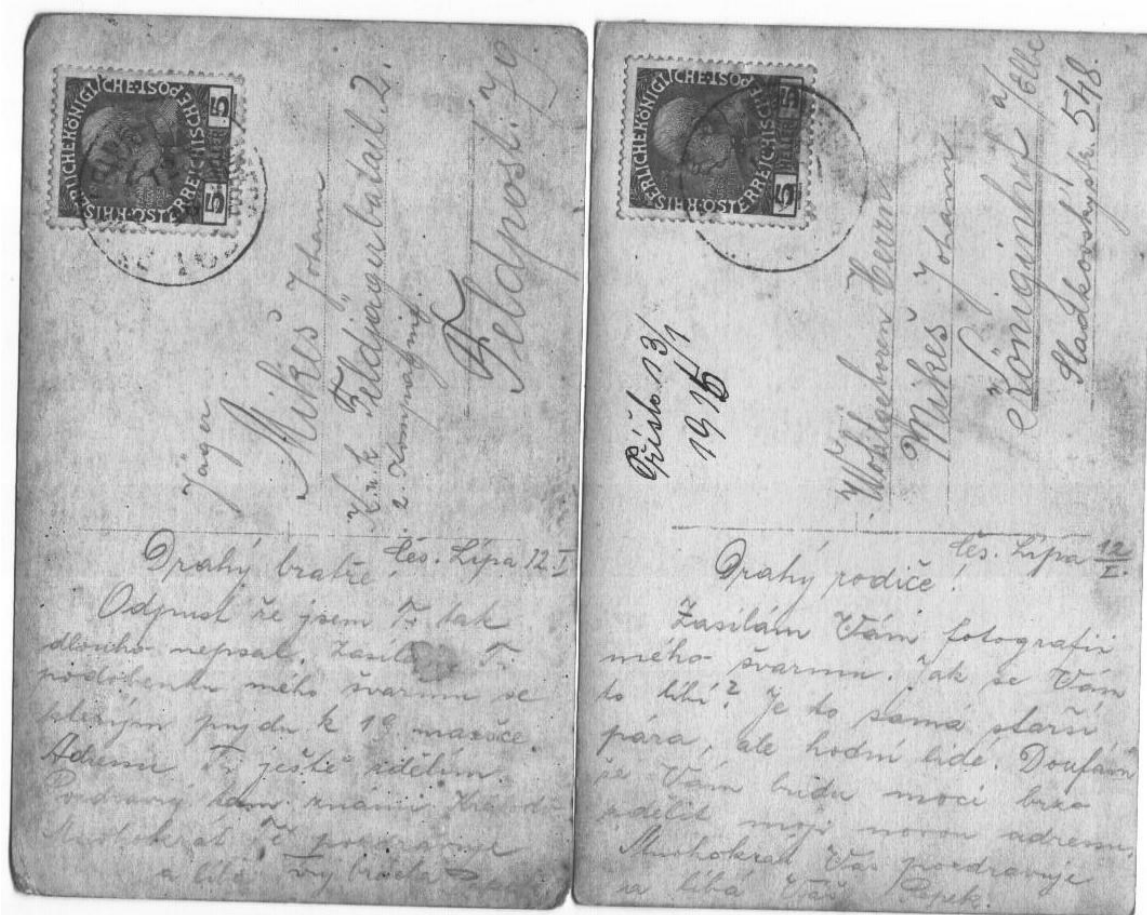 KAISERLICHEKÖNIGLICHE
ÖSTERREICHISCHE POST
5 HELLER 5
Jäger
Mikeš Johann
K.u.k. Feldjägerbatail. 2.
2. Kompagnie.
Feldpost:
Čes. Lípa 12.I
Drahý bratře!
Odpusť že jsem Ti tak
dlouho nepsal. Zasílám Ti
podobenku mého švarmu se
kterým pujdu k 19. maršce.
Adressu Ti ještě sdělím.
Pozdravuj tam známí
Mnohokrát Tě pozdravuje
a líbá Tvý bratr
KAISERLICHEKÖNIGLICHE
ÖSTERREICHISCHE POST
5 HELLER 5
Přišlo 13/1
1916
Wohlgeboren Herrn
Mikeš Johann
Königinhof a/Elbe
Sladkovskýst. 548.
Čes. Lípa 12/I.
Drahý rodiče!
Zasílám Vám fotografii
mého švarmu. Jak se Vám
to líbí? Je to samá starší
pára, ale hodní lidé. Doufám
že Vám budu moci brzo
sdělit moji novou adressu.
Mnohokrát Vás pozdravuje
na líbá Váš Pepek.